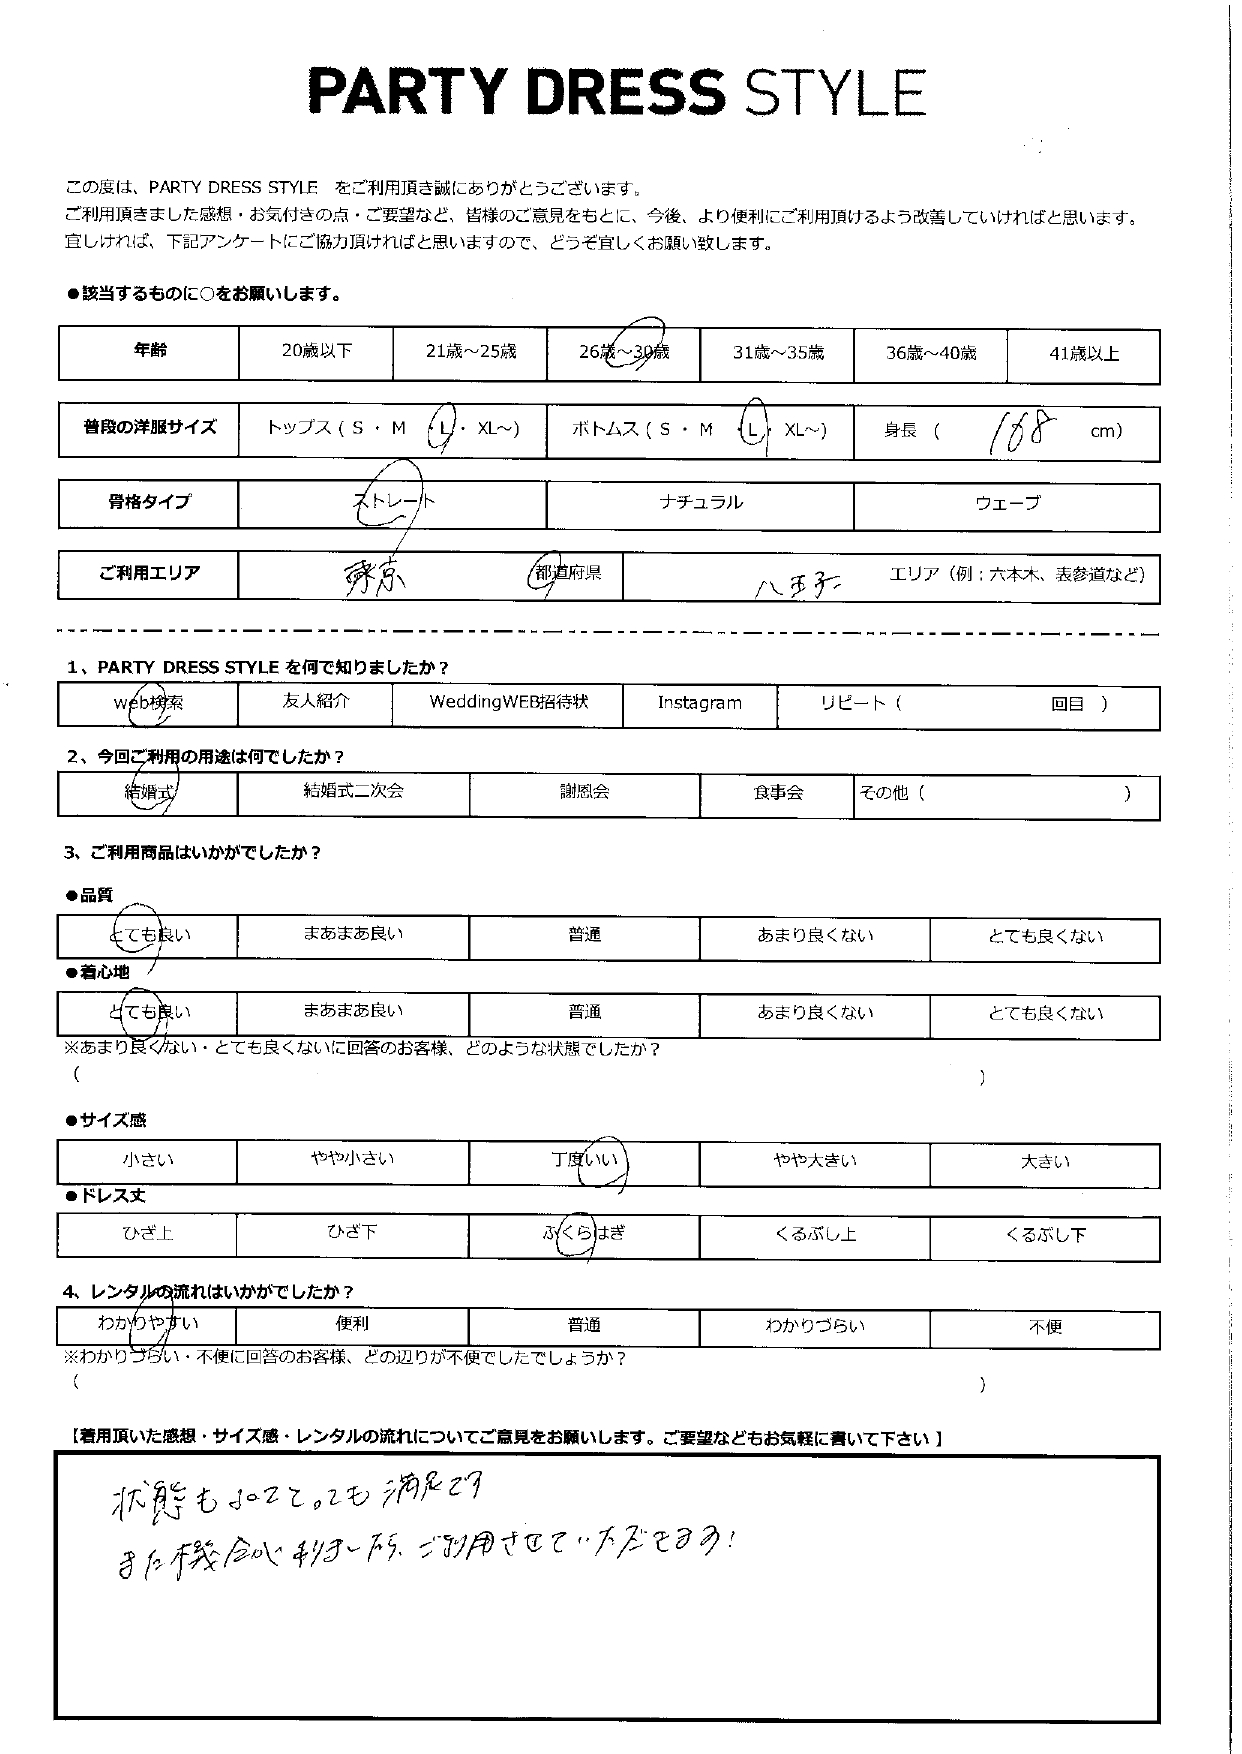 PARTY DRESS STYLE
この度は、PARTY DRESS STYLE をご利用頂き誠にありがとうございます。
ご利用頂きました感想・お気付きの点・ご要望など、皆様のご意見をもとに、今後、より便利にご利用頂けるよう改善していければと思います。
宜しければ、下記アンケートにご協力頂ければと思いますので、どうぞ宜しくお願い致します。
●該当するものに○をお願いします。
年齢 20歳以下 21歳～25歳 26歳～30歳 31歳～35歳 36歳～40歳 41歳以上
普段の洋服サイズ トップス ( S ・ M ・ L ・ XL～) ボトムス ( S ・ M ・ L ・ XL～) 身長 ( 168 cm)
骨格タイプ ストレート ナチュラル ウェーブ
ご利用エリア 東京 都道府県 八王子 エリア（例；六本木、表参道など）
1、PARTY DRESS STYLE を何で知りましたか？
web検索 友人紹介 WeddingWEB招待状 Instagram リピート ( 回目 )
2、今回ご利用の用途は何でしたか？
結婚式 結婚式二次会 謝恩会 食事会 その他 ( )
3、ご利用商品はいかがでしたか？
●品質
とても良い まあまあ良い 普通 あまり良くない とても良くない
●着心地
とても良い まあまあ良い 普通 あまり良くない とても良くない
※あまり良くない・とても良くないに回答のお客様、どのような状態でしたか？
( )
●サイズ感
小さい やや小さい 丁度いい やや大きい 大きい
●ドレス丈
ひざ上 ひざ下 ふくらはぎ くるぶし上 くるぶし下
4、レンタルの流れはいかがでしたか？
わかりやすい 便利 普通 わかりづらい 不便
※わかりづらい・不便に回答のお客様、どの辺りが不便でしたでしょうか？
( )
【着用頂いた感想・サイズ感・レンタルの流れについてご意見をお願いします。ご要望などもお気軽に書いて下さい 】
状態もよくてとっても満足です
また機会が有りましたら、ご利用させていただきます！